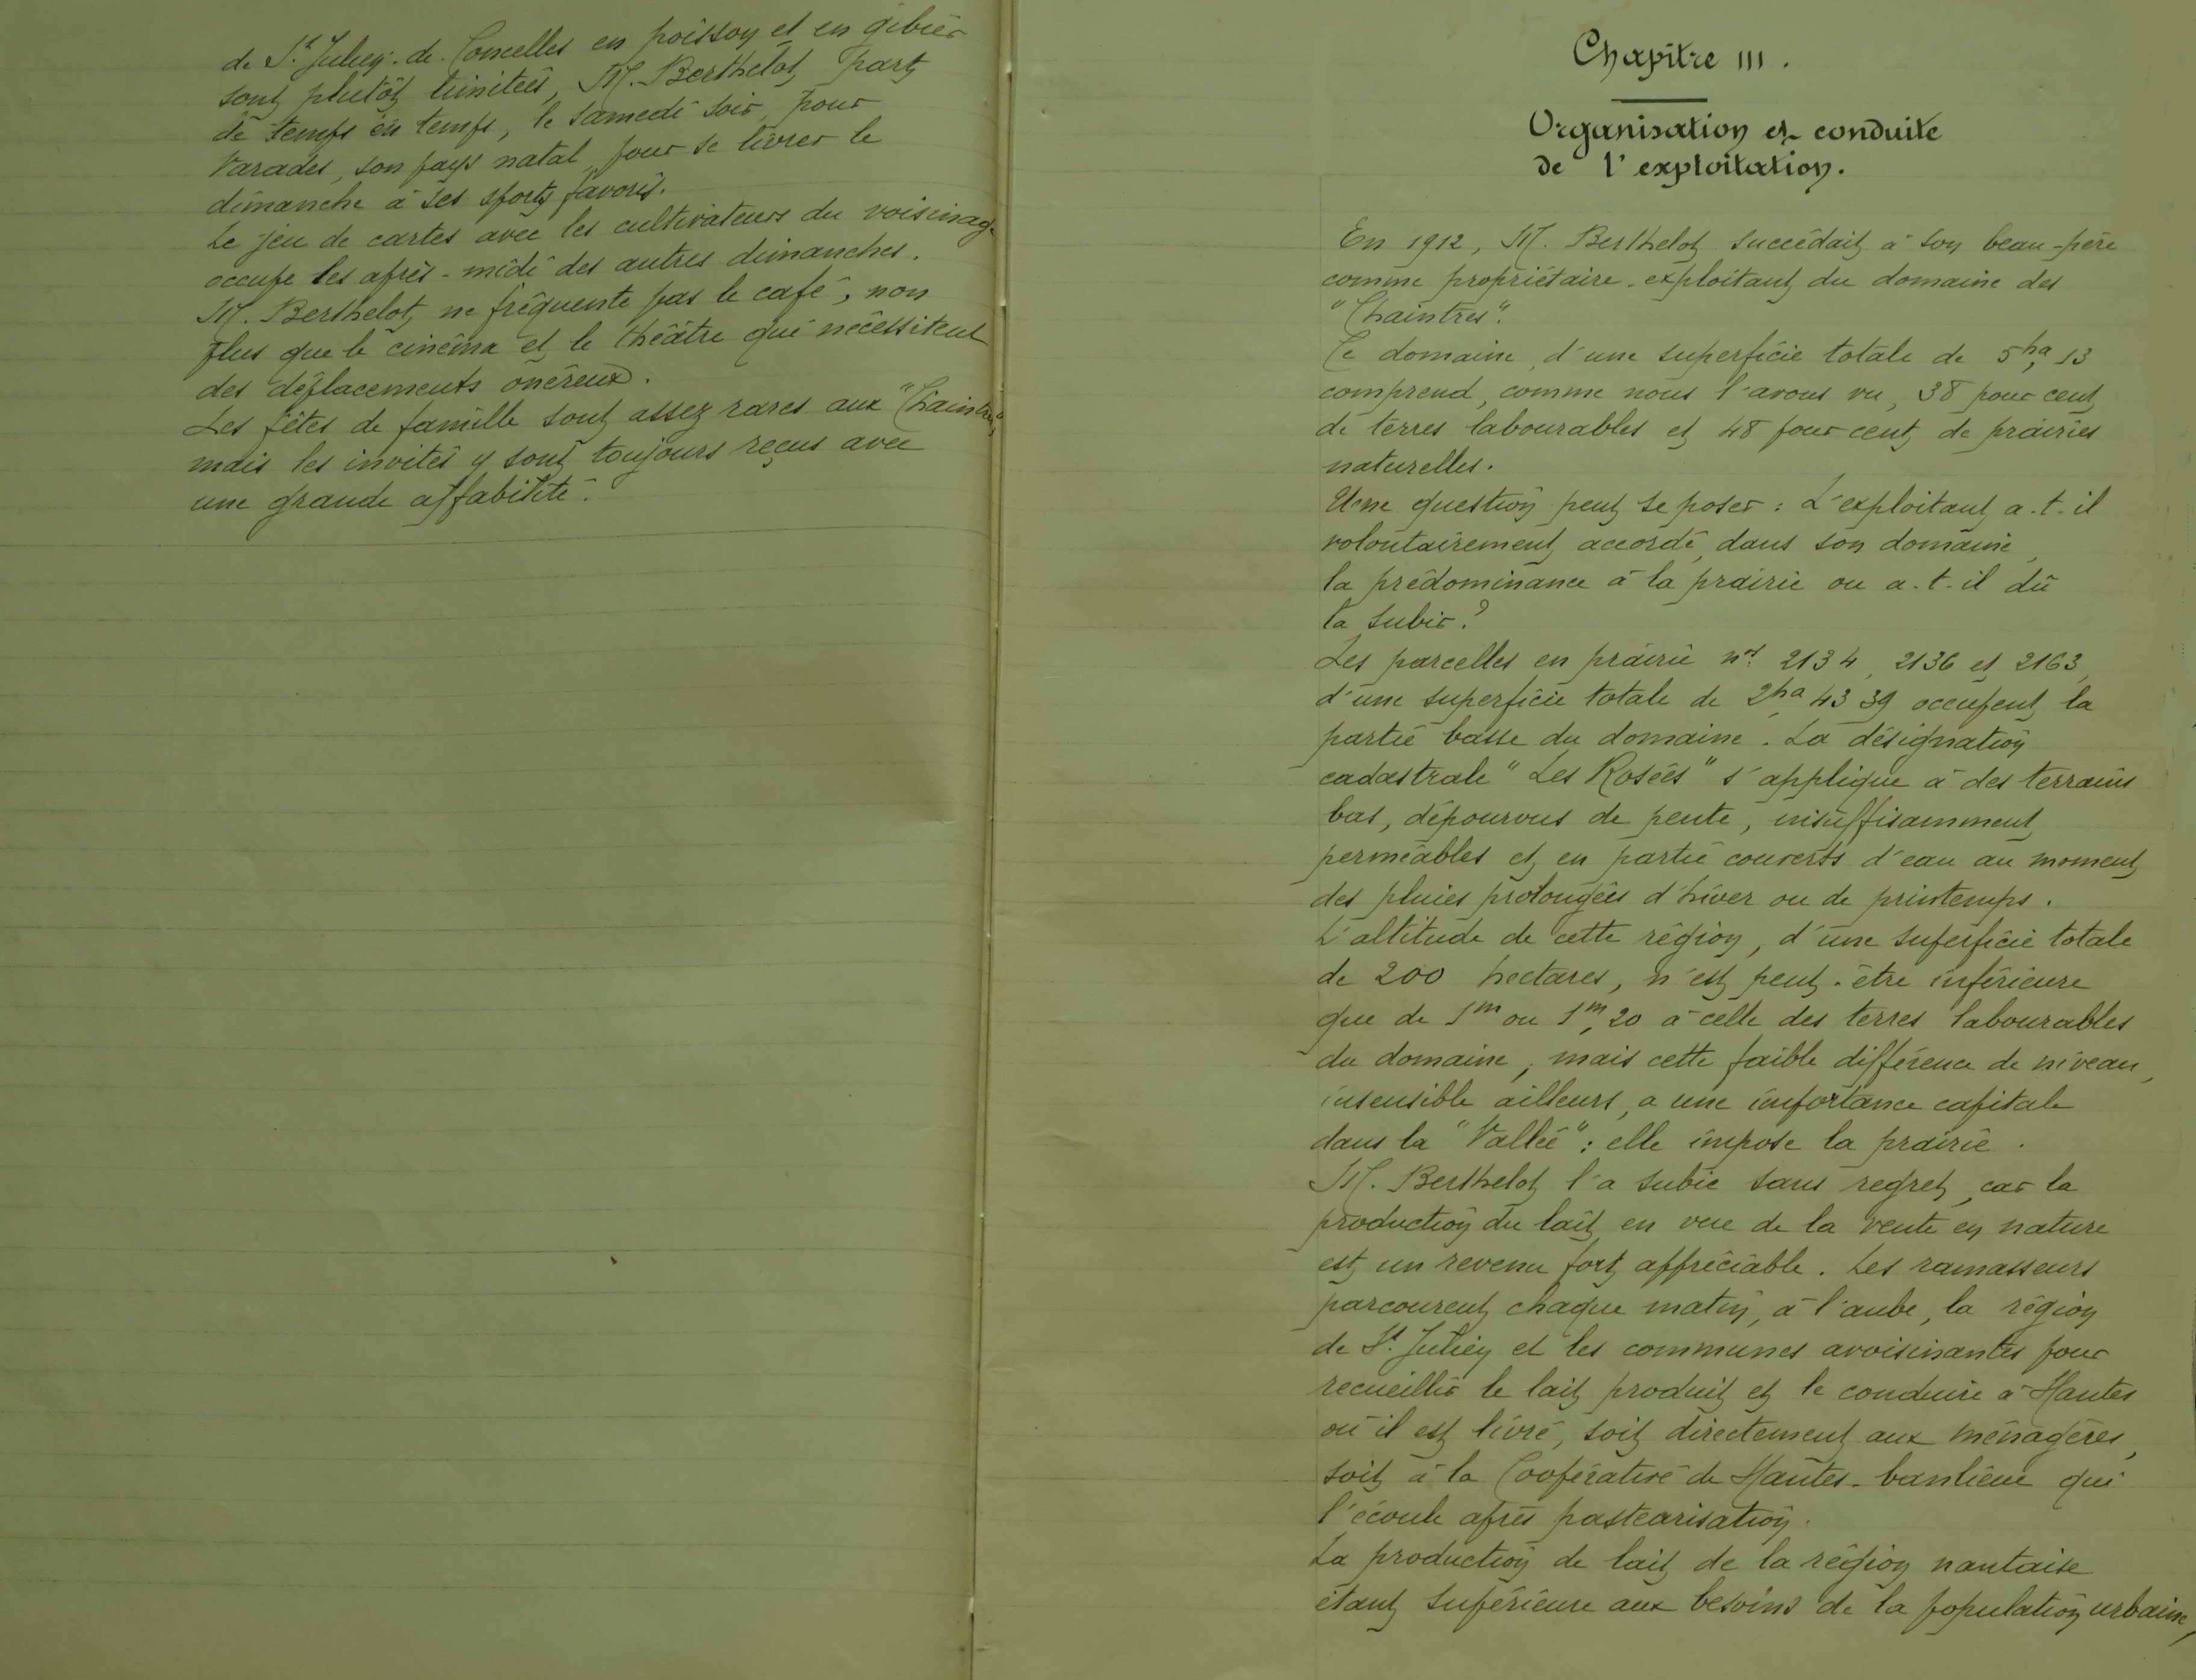 de St. Julien-de-Concelles en poisson et en gibier
sont plutôt limitées, M. Berthelot part
de temps en temps, le samedi soir, pour
Varades, son pays natal, pour se livrer le
dimanche à ses sports favoris.
Le jeu de cartes avec les cultivateurs du voisinage
occupe les après-midi des autres dimanches.
M. Berthelot ne fréquente pas le café, non
plus que le cinéma et le théâtre qui nécessitent
des déplacements onéreux.
Les fêtes de famille sont assez rares aux "Chaintres",
mais les invités y sont toujours reçus avec
une grande affabilité.
Chapitre III.
Organisation et conduite
de l'exploitation.
En 1912, M. Berthelot succédait à son beau-père
comme propriétaire-exploitant du domaine des
"Chaintres".
Ce domaine, d'une superficie totale de 5ha,13
comprend, comme nous l'avons vu, 38 pour cent
de terres labourables et 48 pour cent de prairies
naturelles.
Une question peut se poser : L'exploitant a-t-il
volontairement accordé, dans son domaine,
la prédominance à la prairie ou a-t-il dû
la subir ?
Les parcelles en prairie nos 2134, 2136 et 2163,
d'une superficie totale de 2ha,43 39 occupent la
partie basse du domaine. La désignation
cadastrale "Les Rosées" s'applique à des terrains
bas, dépourvus de pente, insuffisamment
perméables et en partie couverts d'eau au moment
des pluies prolongées d'hiver ou de printemps.
L'altitude de cette région, d'une superficie totale
de 200 hectares, n'est peut-être inférieure
que de 1m ou 1m,20 à celle des terres labourables
du domaine, mais cette faible différence de niveau,
insensible ailleurs, a une importance capitale
dans la "Vallée" : elle impose la prairie.
M. Berthelot l'a subie sans regret, car la
production du lait en vue de la vente en nature
est un revenu fort appréciable. Les ramasseurs
parcourent chaque matin, à l'aube, la région
de St. Julien et les communes avoisinantes pour
recueillir le lait produit et le conduire à Nantes
où il est livré, soit directement aux ménagères,
soit à la Coopérative de Nantes-banlieue qui
l'écoule après pasteurisation.
La production de lait de la région nantaise
étant supérieure aux besoins de la population urbaine,